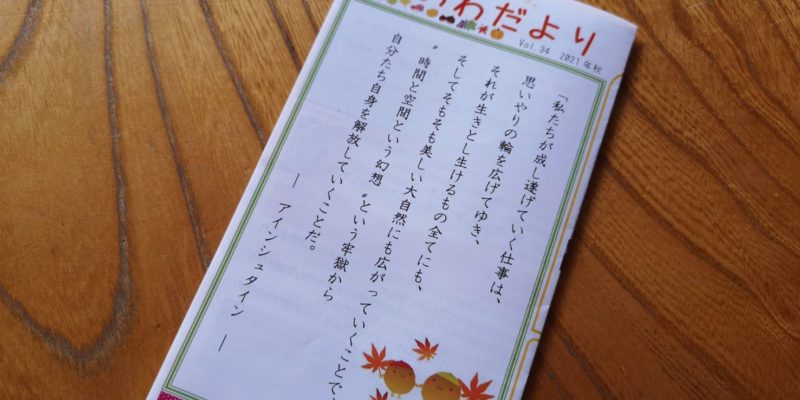 わだより
Vol.34 2021年秋
「私たちが成し遂げていく仕事は、
思いやりの輪を広げてゆき、
それが生きとし生けるもの全てにも、
そしてそもそも美しい大自然にも広がっていくことで、
“時間と空間という幻想”という牢獄から
自分たち自身を解放していくことだ。
― アインシュタイン ―